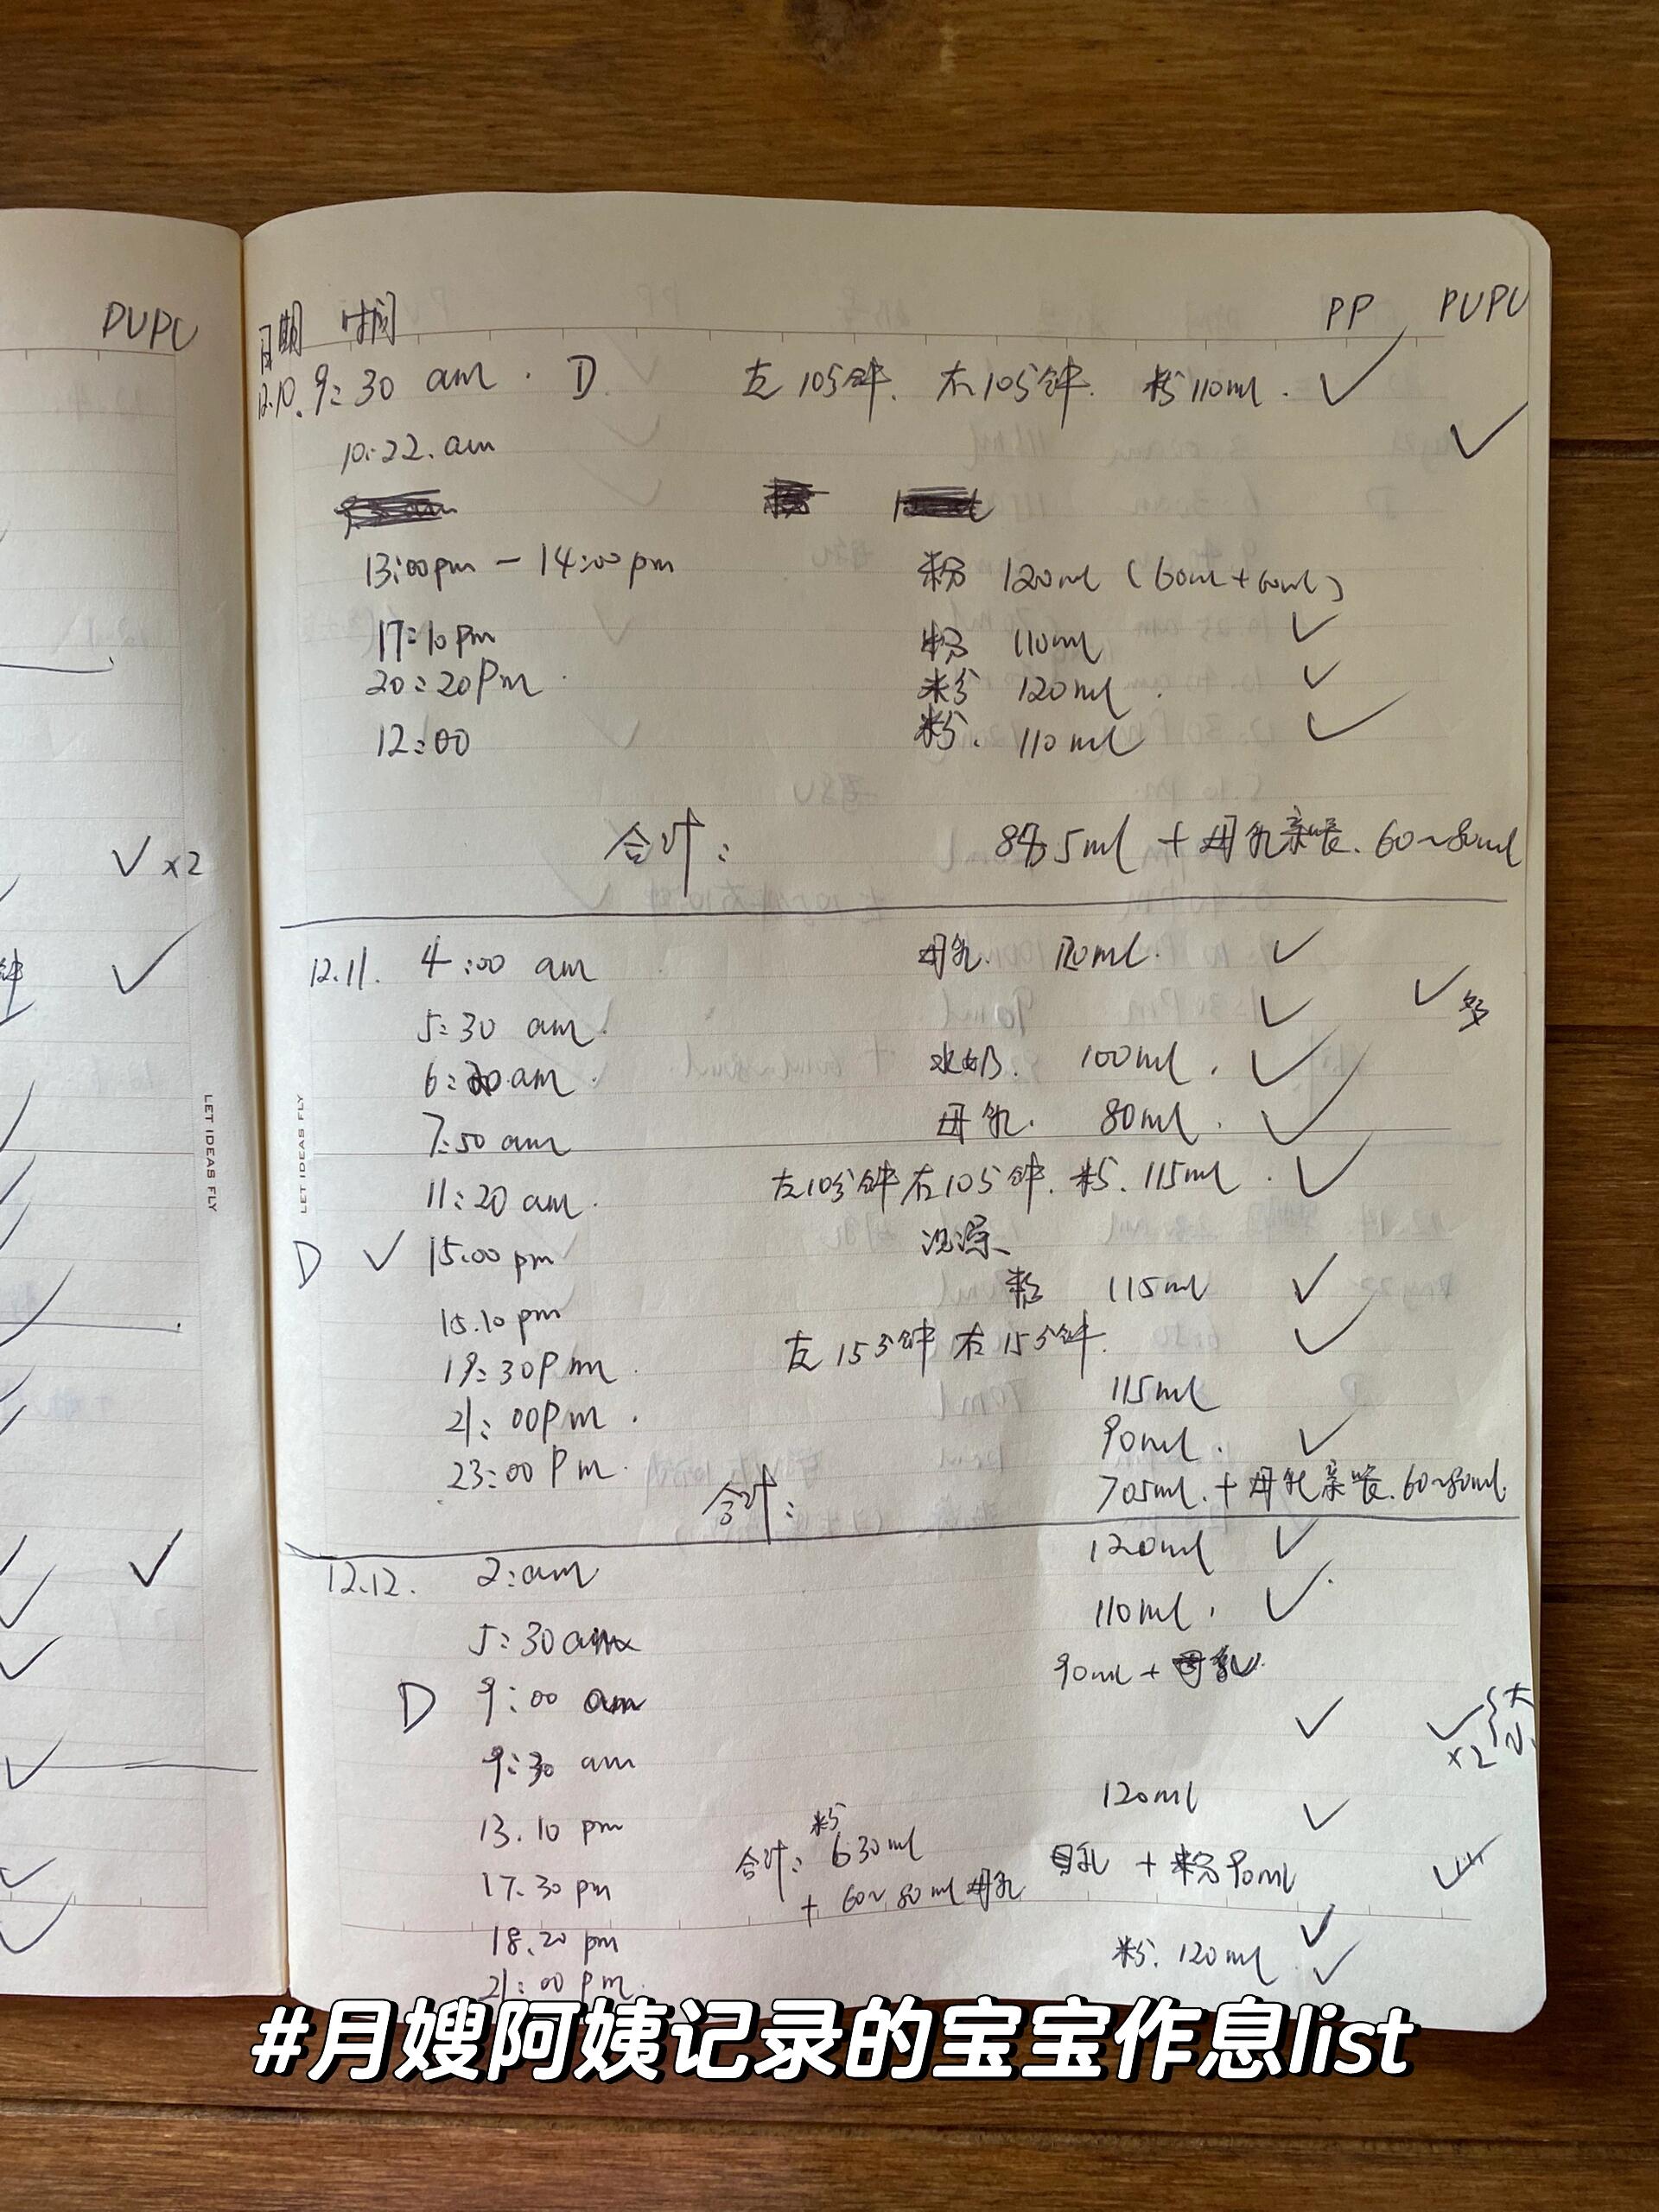 PUPU
✓ x2
钟 ✓
✓
LET IDEAS FLY
LET IDEAS FLY
日期 时间 PP PUPU
12.10. 9:30 am . D 左10分钟. 右10分钟. 粉110ml. ✓
10:22.am ✓
13:00pm - 14:00pm 粉 120ml (60ml+60ml)
17:10pm 粉 110ml ✓
20:20Pm 粉 120ml. ✓
12:00 粉. 110ml ✓
合计: 5ml + 母乳亲喂. 60~80ml
12.11. 4:00 am 母乳. 120ml. ✓
5:30 am. ✓ ✓ 多
6: am. 水奶. 100ml. ✓
7:50 am 母乳. 80ml. ✓
11:20 am. 左10分钟右10分钟. 粉. 115ml. ✓
D ✓ 15:00 pm 洗澡
15.10 pm 粉 115ml ✓
19:30Pm. 左15分钟 右15分钟. ✓
21:00Pm. 115ml
23:00 Pm. 90ml. ✓
合计: 705ml.+母乳亲喂.60~80ml.
12.12. 2:am 120ml ✓
5:30am 110ml. ✓
D 9:00 am 90ml+母乳.
9:30 am ✓ ✓x2 {大 小
13.10 pm 120ml ✓
17.30 pm 母乳 + 粉90ml ✓
合计: 粉630ml
+ 60~80ml母乳
18.20 pm ✓
21:00 pm. 粉. 120ml ✓
#月嫂阿姨记录的宝宝作息list